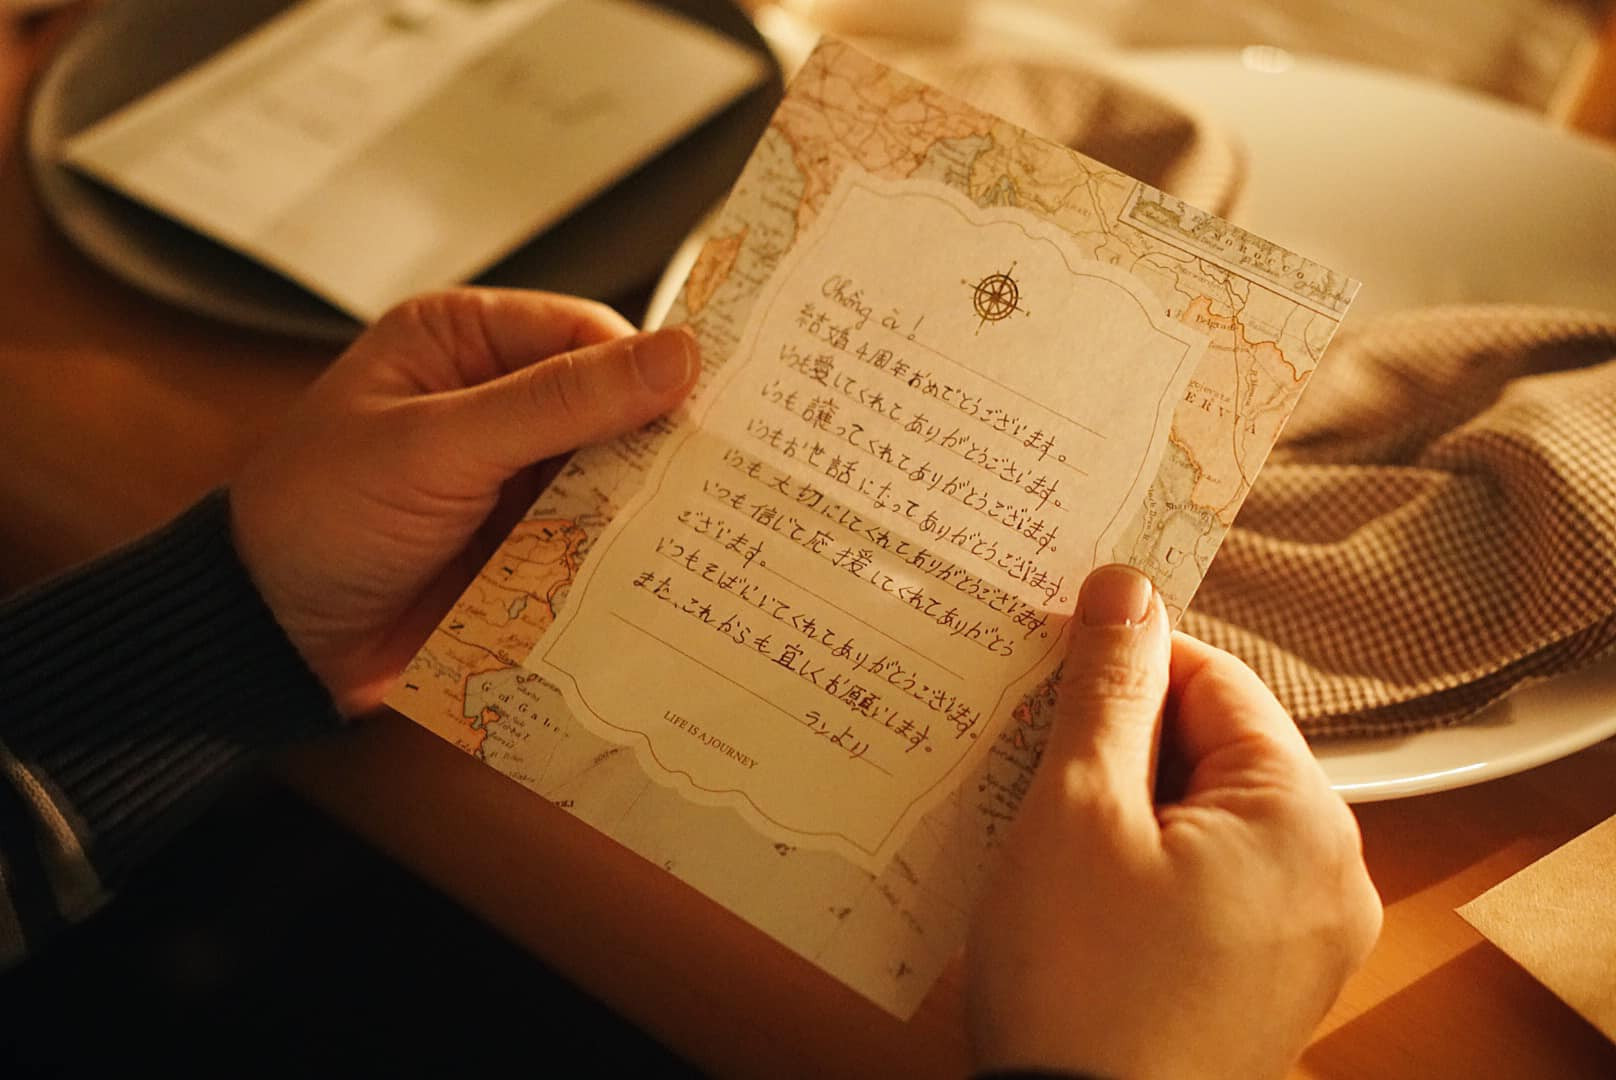 Chồng à!
結婚4周年おめでとうございます。
いつも愛してくれてありがとうございます。
いつも護ってくれてありがとうございます。
いつもお世話になってありがとうございます。
いつも大切にしてくれてありがとうございます。
いつも信じて応援してくれてありがとう
ございます。
いつもそばにいてくれてありがとうございます。
また、これからも宜しくお願いします。
ランより
LIFE IS A JOURNEY
MOROCCO
Belgrade
SERVIA
U
G. of Gabes